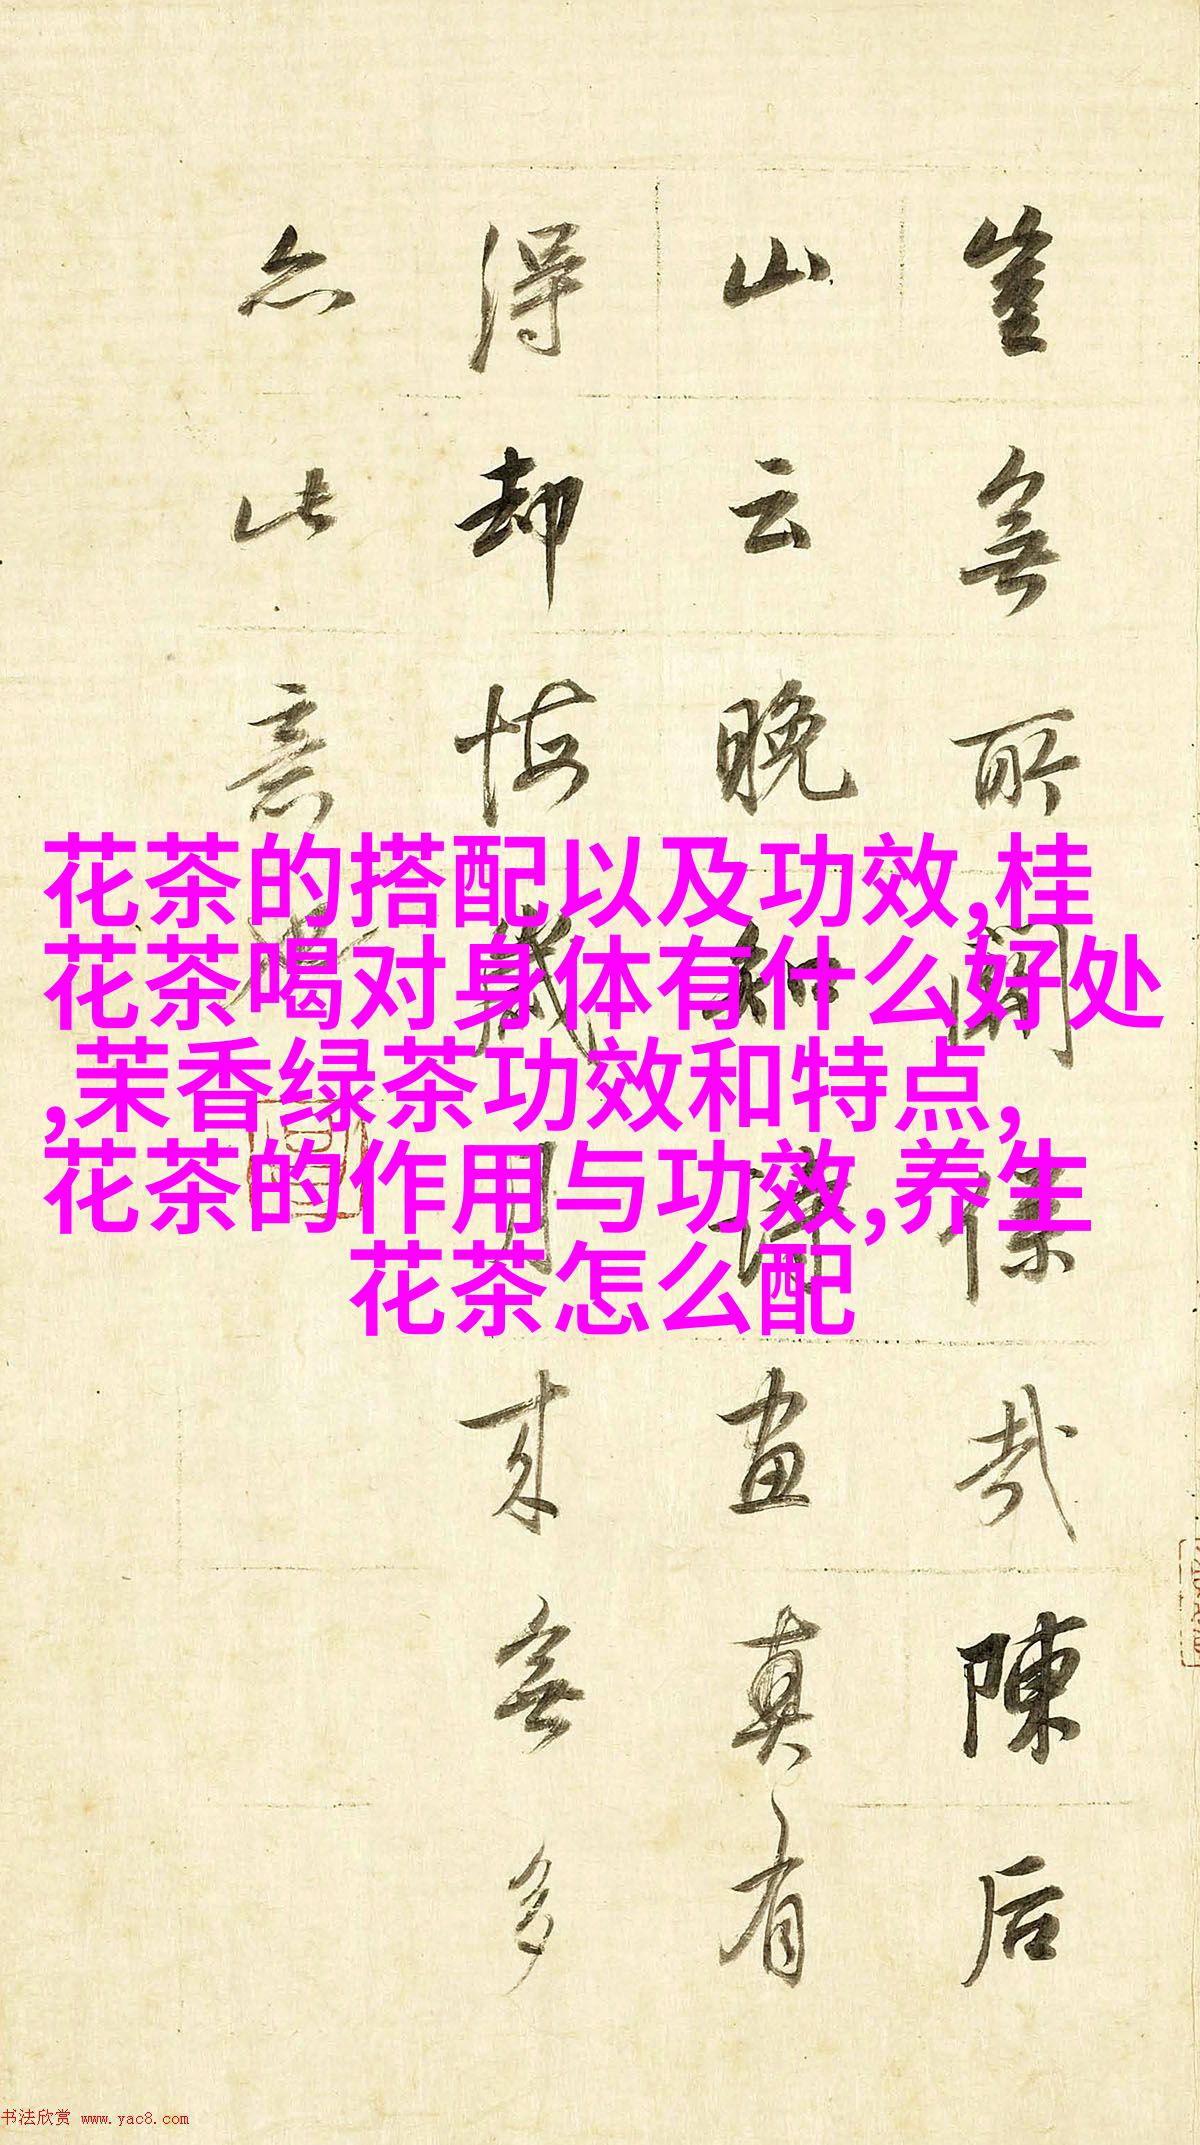 岂无所闻
陈后
山云晚知
画真有
得却悔
岁月来无多
亦此意
花茶的搭配以及功效,桂
花茶喝对身体有什么好处
,茉香绿茶功效和特点,
花茶的作用与功效,养生
花茶怎么配
书法欣赏 www.yac8.com